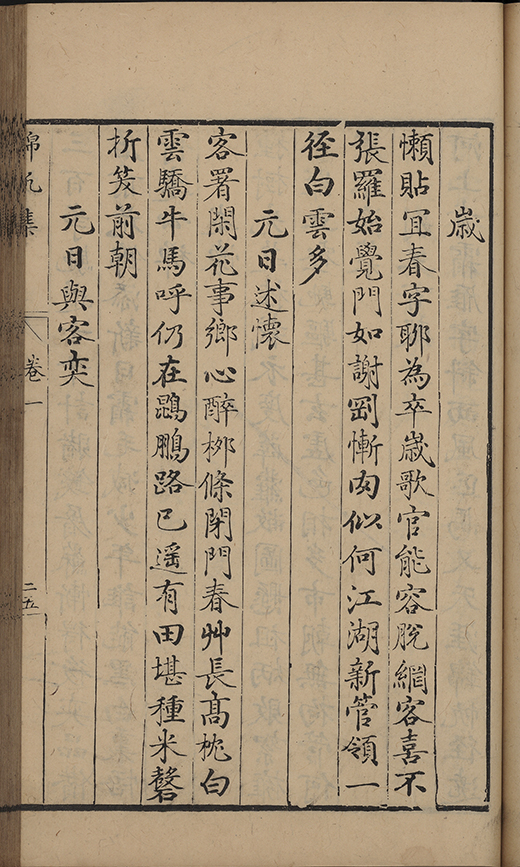 歳
懶貼宜春字聊為卒歳歌官能容脫網客喜不
張羅始覺門如謝剛慚肉似何江湖新管領一
徑白雲多
元日述懷
客署閑花事鄉心醉柳條閉門春艸長髙枕白
雲驕牛馬呼仍在鵾鵬路已遥有田堪種米磬
折笑前朝
元日與客奕
錦帆集 卷一 二五